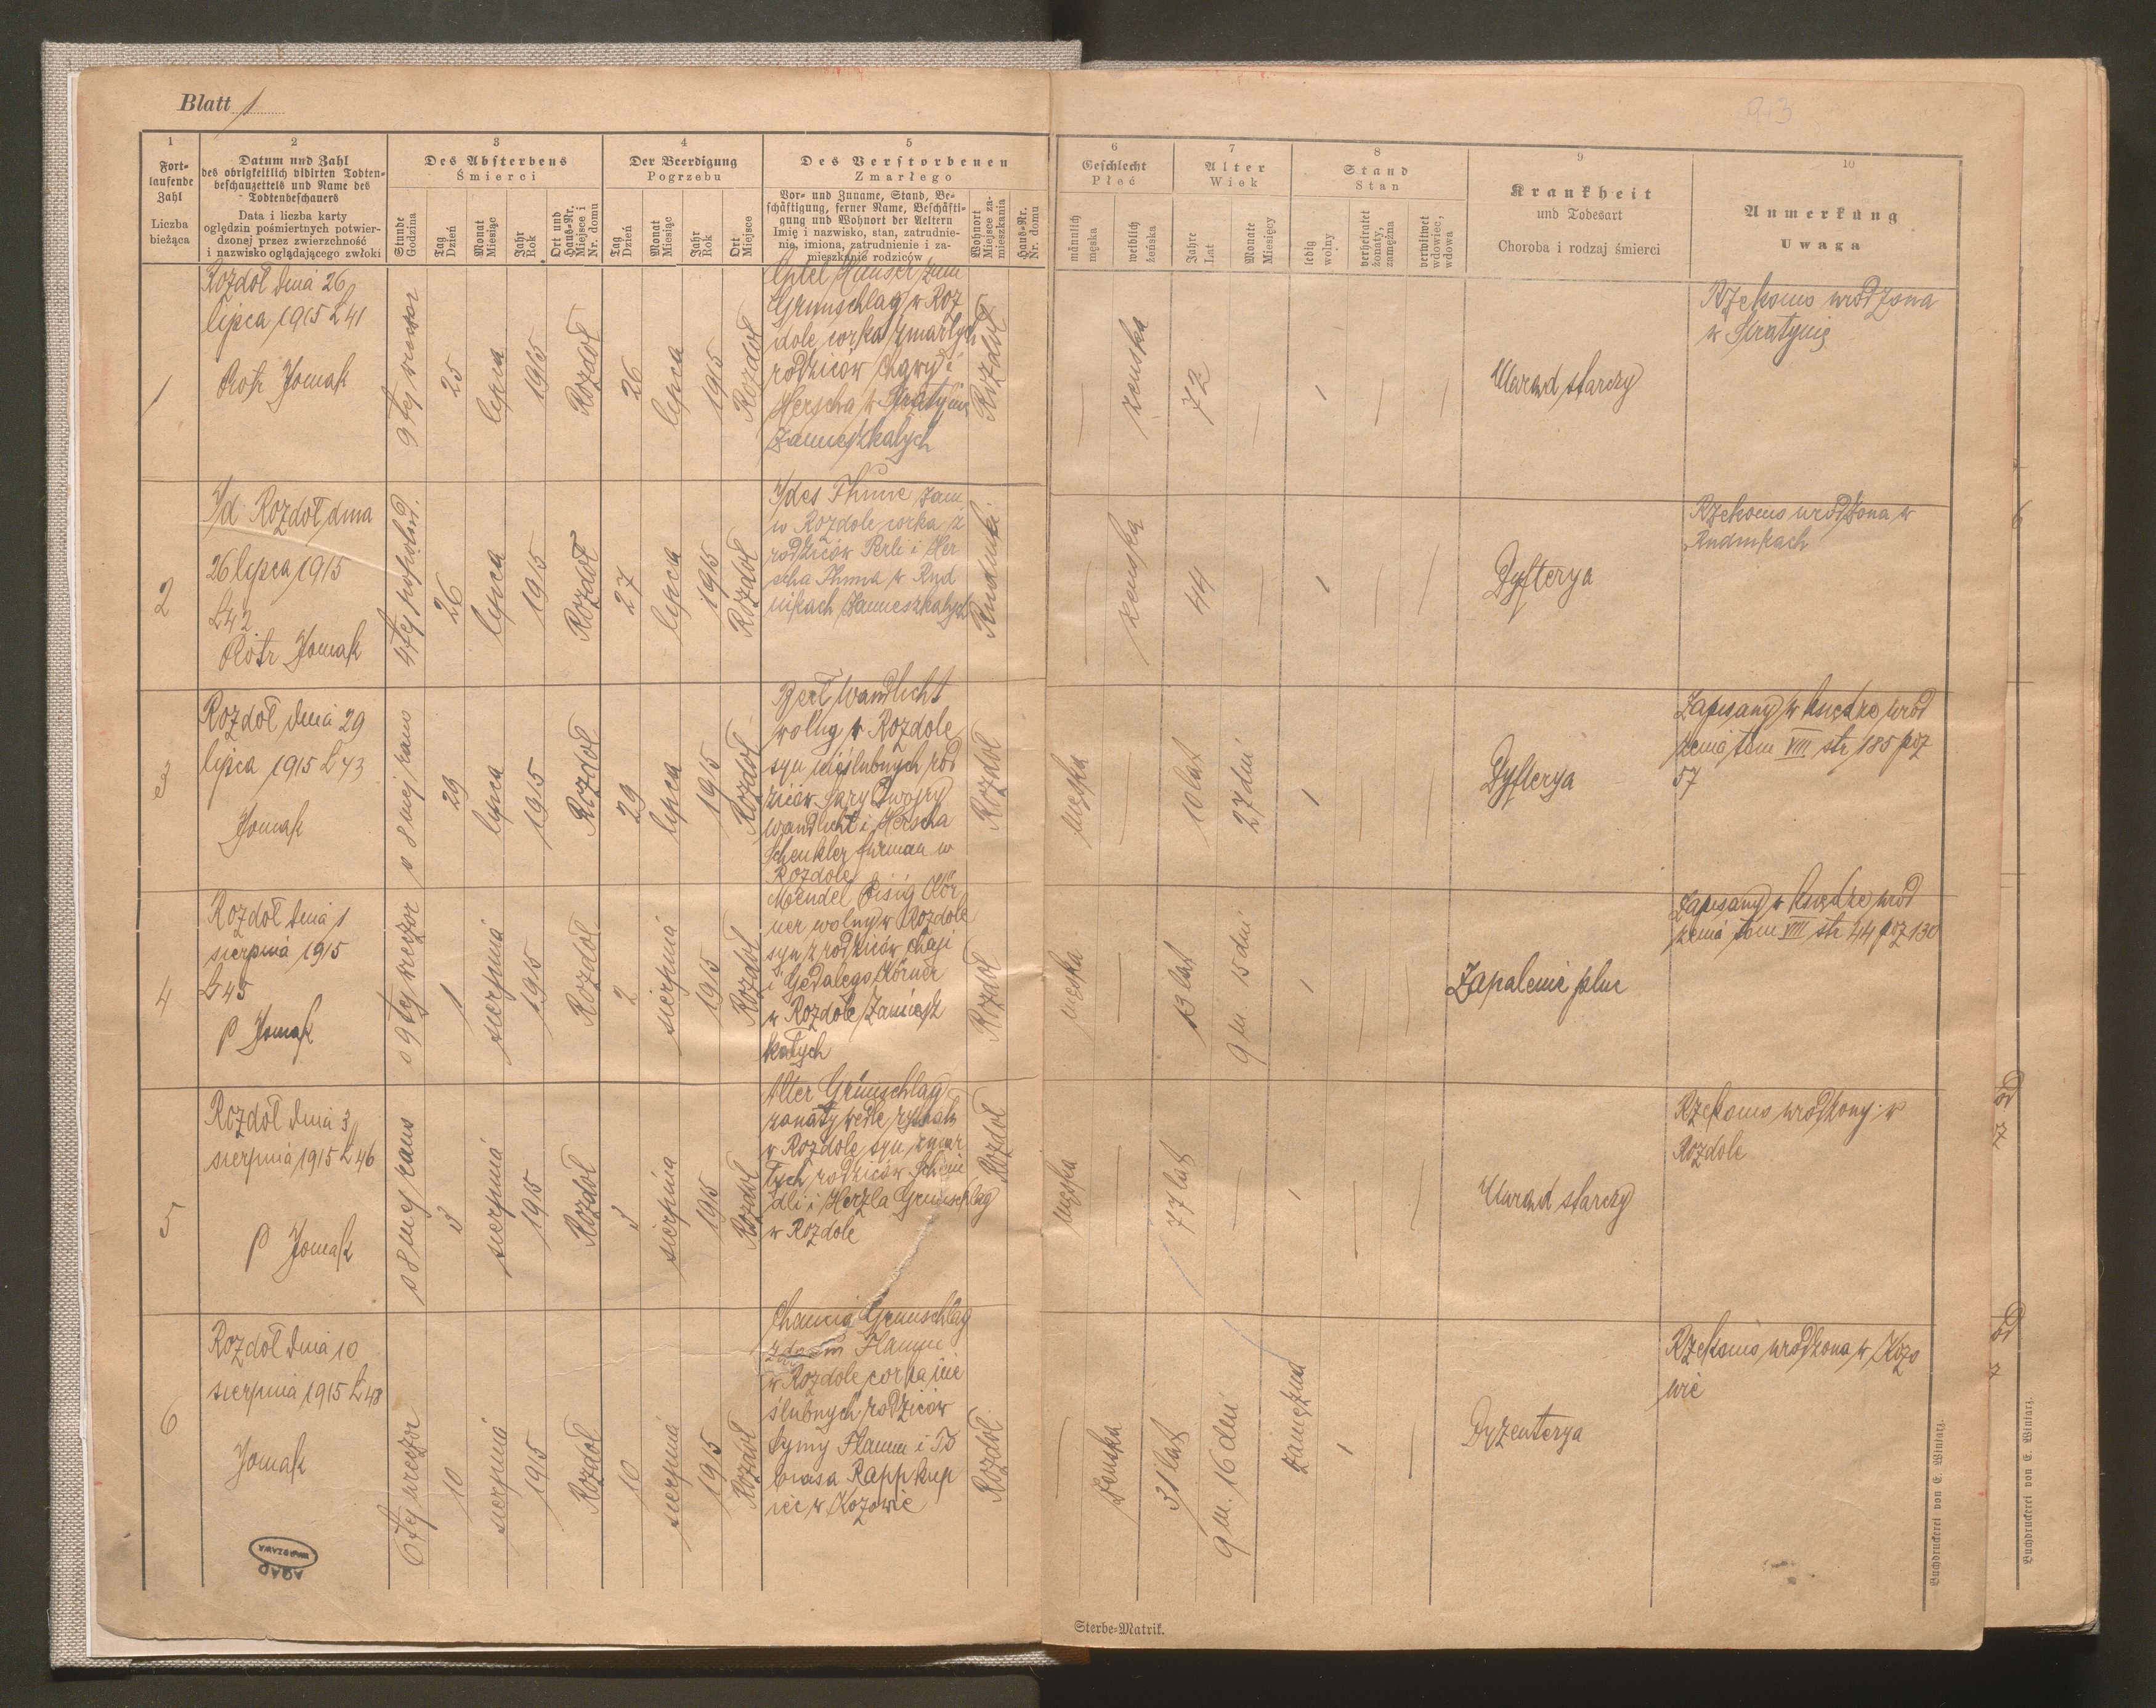 Blatt 1
913
1
Fort-
laufende
Zahl
Liczba
bieżąca
2
Datum und Zahl
des obrigkeitlich vidirten Todten-
beschauzettels und Name des
Todtenbeschauers
Data i liczba karty
oględzin pośmiertnych potwier-
dzonej przez zwierzchność
i nazwisko oglądającego zwłoki
3
Des Absterbens
Śmierci
Stunde
Godzina
Tag
Dzień
Monat
Miesiąc
Jahr
Rok
Ort und
Haus-Nr.
Miejsce i
Nr. domu
4
Der Beerdigung
Pogrzebu
Tag
Dzień
Monat
Miesiąc
Jahr
Rok
Ort
Miejsce
5
Des Verstorbenen
Zmarłego
Vor- und Zuname, Stand, Be-
schäftigung, ferner Name, Beschäfti-
gung und Wohnort der Aeltern
Imię i nazwisko, stan, zatrudnie-
nie, imiona, zatrudnienie i za-
mieszkanie rodziców
Wohnort
Miejsce za-
mieszkania
Haus-Nr.
Nr. domu
6
Geschlecht
Płeć
männlich
męska
weiblich
żeńska
7
Alter
Wiek
Jahre
Lat
Monate
Miesięcy
8
Stand
Stan
ledig
wolny
verheiratet
żonaty,
zamężna
verwitwet
wdowiec,
wdowa
9
Krankheit
und Todesart
Choroba i rodzaj śmierci
10
Anmerkung
Uwaga
1
Rozdół dnia 26
lipca 1915 L 41
Piotr Jomak
9tej wieczor
25
lipca
1915
Rozdół
26
lipca
1915
Rozdół
Grunschlag w Roz
dole córka zmarłych
rodziców
Herscha w Stratynie
zamieszkałych
Rozdół
żeńska
72
Uwiąd starczy
Rzekomo urodzona
w Stratynie
2
Rozdół dnia
26 lipca 1915
L 42
Piotr Jomak
4tej popołud.
26
lipca
1915
Rozdół
27
lipca
1915
Rozdół
w Rozdole córka z
rodziców Perli i Her
scha Thuna w Rud
nikach zamieszkałych
Rudniki
żeńska
44
1
Dyfterya
Rzekomo urodzona w
Rudnikach
3
Rozdół dnia 29
lipca 1915 L 43
Jomak
o 8mej rano
29
lipca
1915
Rozdół
29
lipca
1915
Rozdół
Berl Wandlicht
wolny w Rozdole
syn nieślubnych rod
ziców Sary Dwojry
Wandlicht i Herscha
Schenkler furman w
Rozdole
Rozdół
męska
10 lat
27 dni
1
Dyfterya
Zapisany w księdze urod
zenia tom VIII str 185 poz
57
4
Rozdół dnia 1
sierpnia 1915
L 45
P Jomak
o 9tej wieczor
1
sierpnia
1915
Rozdół
2
sierpnia
1915
Rozdół
Mendel Eisig Kör
ner wolny w Rozdole
syn z rodziców Chaji
i Gedalego Körner
w Rozdole zamiesz
kałych
Rozdół
męska
13 lat
9 m. 15 dni
1
Zapalenie płuc
Zapisany w księdze urod
zenia tom VIII str 44 poz 130
5
Rozdół dnia 3
sierpnia 1915 L 46
P Jomak
o 8mej rano
3
sierpnia
1915
Rozdół
3
sierpnia
1915
Rozdół
Alter Grünschlag
żonaty wedle rytuału
w Rozdole syn zmar
łych rodziców Schein
dli i Herzla Grunschlag
w Rozdole
Rozdół
męska
77 lat
1
Uwiąd starczy
Rzekomo urodzony w
Rozdole
6
Rozdół dnia 10
sierpnia 1915 L 48
Jomak
6tej wieczor
10
sierpnia
1915
Rozdół
10
sierpnia
1915
Rozdół
Grunschlag
z dom Hamm
w Rozdole córka nie
ślubnych rodziców
Symy Hamm i To
biasa Rapp kup
iec w Kozowie
Rozdół
żeńska
31 lat
9 m. 16 dni
zamężna
1
Dyzenterya
Rzekomo urodzona w Kozo
wie
WARSZAWA
AGAD
Sterbe-Matrik.
Buchdruckerei von E. Winiarz.
Buchdruckerei von E. Winiarz.